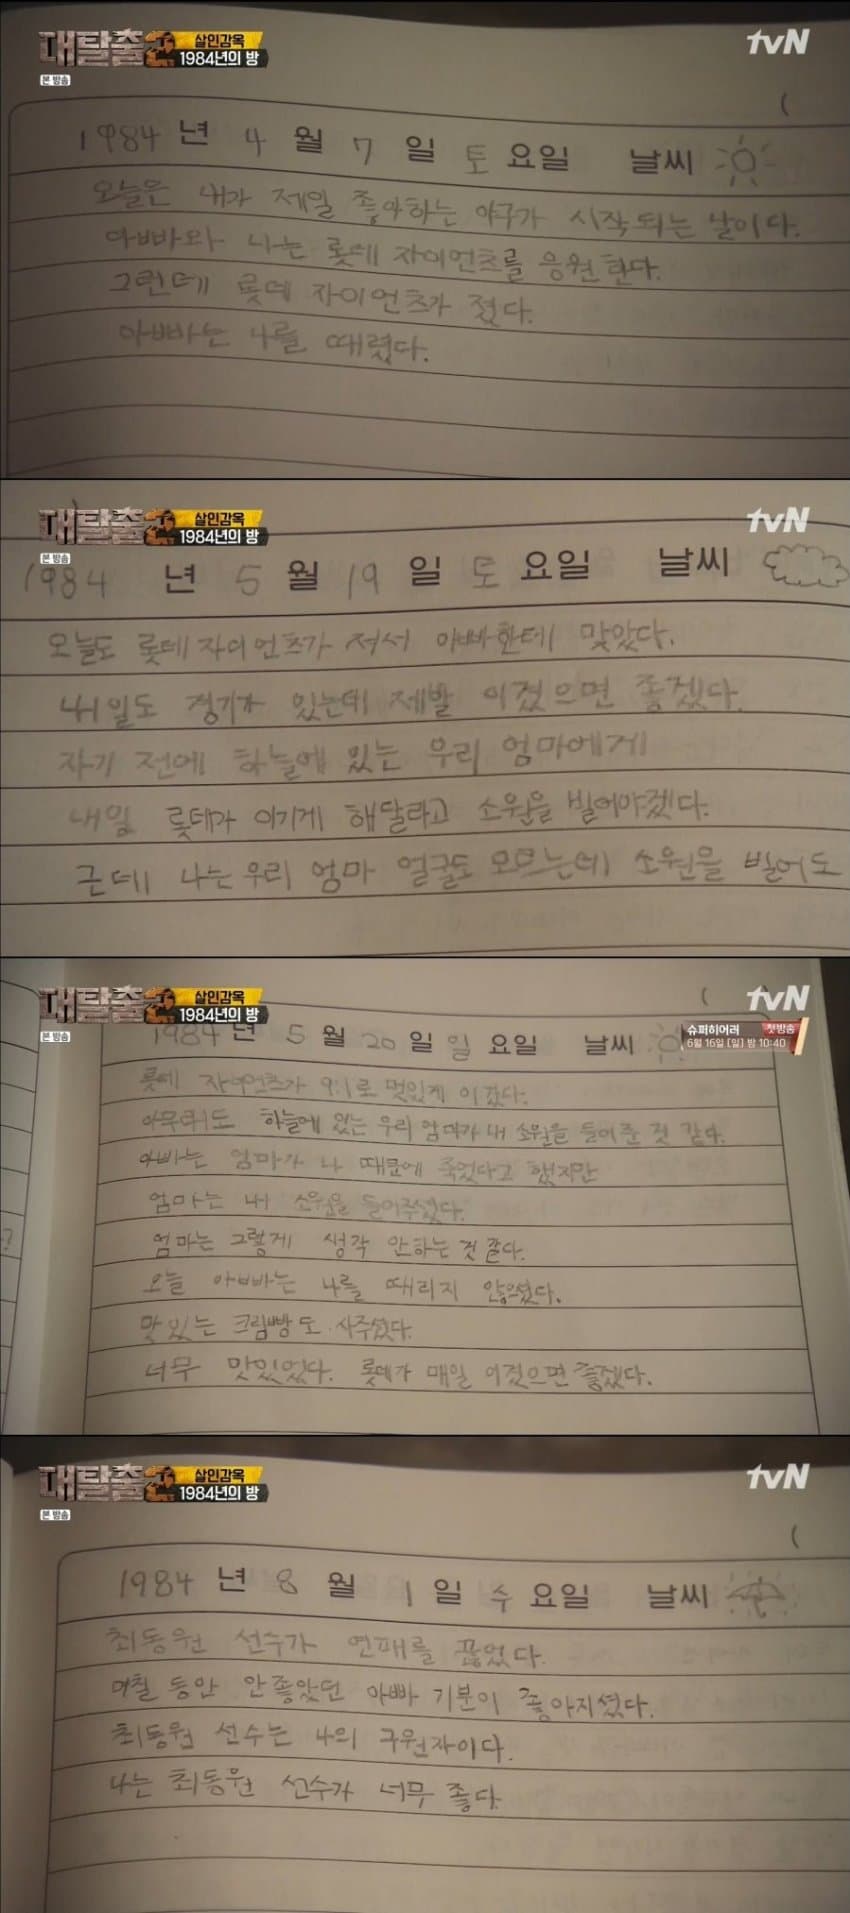 대탈출2
살인감옥
1984년의 방
본 방송
tvN
1984 년 4 월 7 일 토 요일 날씨
오늘은 내가 제일 좋아하는 야구가 시작 되는 날이다.
아빠와 나는 롯데 자이언츠를 응원 한다.
그런데 롯데 자이언츠가 졌다.
아빠는 나를 때렸다.
대탈출2
살인감옥
1984년의 방
본 방송
tvN
1984 년 5 월 19 일 토 요일 날씨
오늘도 롯데 자이언츠가 져서 아빠한테 맞았다.
내일도 경기가 있는데 제발 이겼으면 좋겠다.
자기 전에 하늘에 있는 우리 엄마에게
내일 롯데가 이기게 해달라고 소원을 빌어야겠다.
근데 나는 우리 엄마 얼굴도 모르는데 소원을 빌어도
대탈출2
살인감옥
1984년의 방
본 방송
tvN
슈퍼히어러 첫방송
6월 16일 [일] 밤 10:40
1984 년 5 월 20 일 일 요일 날씨
롯데 자이언츠가 9:1로 멋있게 이겼다.
아무래도 하늘에 있는 우리 엄마가 내 소원을 들어준 것 같다.
아빠는 엄마가 나 때문에 죽었다고 했지만
엄마는 내 소원을 들어주셨다.
엄마는 그렇게 생각 안하는 것 같다.
오늘 아빠는 나를 때리지 않으셨다.
맛있는 크림빵도 사주셨다.
너무 맛있었다. 롯데가 매일 이겼으면 좋겠다.
?
대탈출2
살인감옥
1984년의 방
본 방송
tvN
1984 년 8 월 1 일 수 요일 날씨
최동원 선수가 연패를 끊었다.
며칠 동안 안좋았던 아빠 기분이 좋아지셨다.
최동원 선수는 나의 구원자이다.
나는 최동원 선수가 너무 좋다.